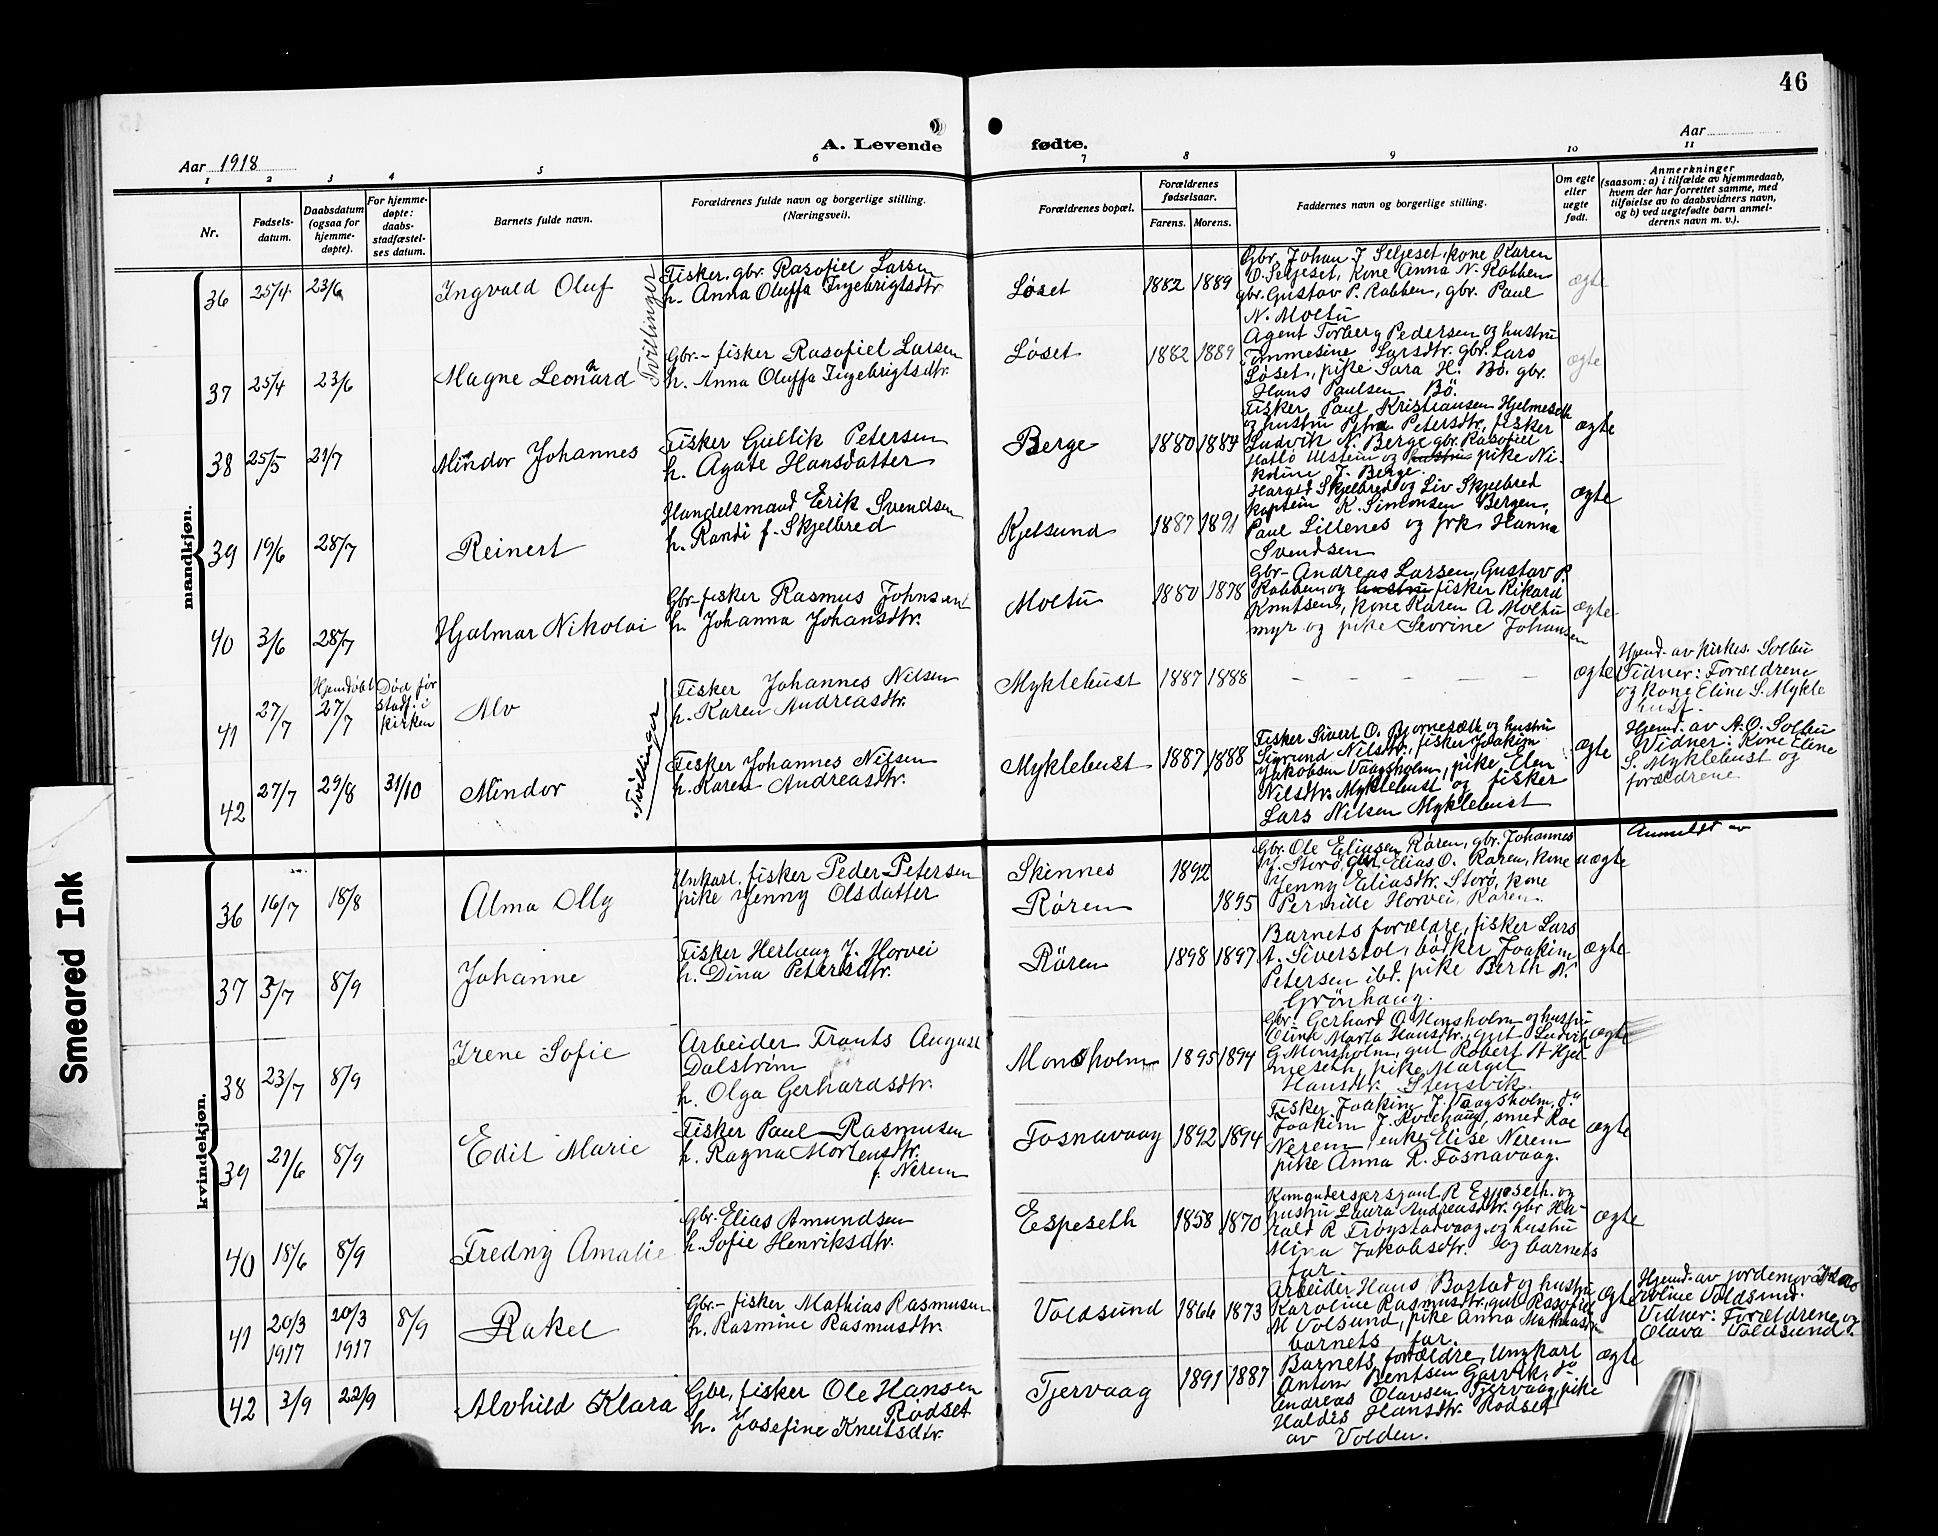 46
A. Levende fødte.
Aar 1918
Aar
1 2 3 4 5 6 7 8 9 10 11
Nr.
Fødsels-
datum.
Daabsdatum
(ogsaa for
hjemme-
døpte).
For hjemme-
døpte:
daabs-
stadfæstel-
ses datum.
Barnets fulde navn.
Forældrenes fulde navn og borgerlige stilling.
(Næringsvei).
Forældrenes bopæl.
Forældrenes
fødselsaar.
Farens. Morens.
Faddernes navn og borgerlige stilling.
Om egte
eller
uegte
født.
Anmerkninger
(saasom: a) i tilfælde av hjemmedaab,
hvem der har forrettet samme, med
tilføielse av to daabsvidners navn,
og b) ved uegtefødte barn anmel-
derens navn m. v.).
mandkjøn.
36 25/4 23/6
Ingvald Oluf
Tvillinger
Fisker, gbr. Rasofiel Larsen
h. Anna Oluffa Ingebrigtsdtr.
Løset 1882 1889
Gbr. Johan J Seljeset, kone Karen
O. Seljeset, kone Anna N. Rabben
gbr. Gustav P. Rabben, gbr. Paul
N. Moltu
ægte
37 25/4 23/6
Magne Leonhard
Gbr.- fisker Rasofiel Larsen
h. Anna Oluffa Ingebrigtsdtr.
Løset 1882 1889
Agent Torberg Pedersen og hustru
Tommesine Larsdtr. gbr. Lars
Løset, pike Sara H. Bö. gbr.
Hans Paulsen Bö.
ægte
38 25/5 21/7
Mindor Johannes
Fisker Gullik Petersen
h. Agate Hansdatter
Berge 1880 1884
Fisker Paul Kristiansen Hjelmeseth
og hustru Petra Petersdtr, fisker
Ludvik N. Berge gbr. Rasofiel
Hatlö Ulstein og hustru pike Ni-
koline J. Berge.
ægte
39 19/6 28/7
Reinert
Handelsmand Erik Svendsen
h. Randi f. Skjelbred
Kjelsund 1887 1891
Harald Skjelbred og Liv Skjelbred
kaptein K. Simonsen Bergen,
Paul Lillenes og frk Hanna
Svendsen
ægte
40 3/6 28/7
Hjalmar Nikolai
Gbr-fisker Rasmus Johnsen
h. Johanna Johansdtr.
Moltu 1880 1878
Gbr- Andreas Larsen, Gustav P.
Rabben og hustru fisker Rikard
Knutsen, kone Karen A. Moltu
myr og pike Sevrine Johansen
ægte
41 27/7
Hjemdöbt
27/7
Död før
stadf. i
kirken
Alv
Tvillinger
Fisker Johannes Nilsen
h. Karen Andreasdtr.
Myklebust 1887 1888
– – – – –
ægte
Hjemd. av kirkes. Solbu
Vidner: Forældrene
og kone Eline S. Mykle
bust.
42 27/7 29/8 31/10
Mindor
Fisker Johannes Nilsen
h. Karen Andreasdtr.
Myklebust 1887 1888
Fisker Sivert O. Bjørnesæth og hustru
Sigrund Nilsdtr., fisker Joakim
Jakobsen Vaagsholm, pike Elen
Nilsdtr. Myklebust og fisker
Lars Nilsen Myklebust
ægte
Hjemd. av A. O. Solbu
Vidner: Kone Eline
S. Myklebust og
forældrene
kvindekjøn.
36 16/7 18/8
Alma Olly
Unkarl, fisker Peder Petersen
pike Jenny Olsdatter
Skinnes 1892
Røren 1895
Gbr. Ole Eliasen Røren, gbr. Johannes
Storö, gut Elias O. Røren, kone
Jenny Eliasdtr. Storö, kone
Pernille Horvei, Røren.
uægte
Anmeldt av
37 3/7 8/9
Johanne
Fisker Herlaug J. Horvei
h. Dina Petersdtr.
Rören 1898 1897
Barnets forældre, fisker Lars
A. Siverstöl, bödker Joakim
Petersen ibd. pike Berth N.
Grönhaug.
ægte
38 23/7 8/9
Irene Sofie
Arbeider Frants August
Dalström
h. Olga Gerhardsdtr.
Monsholm 1895 1894
Gbr. Gerhard O. Monsholm og hustru
Olina Marta Hansdtr., gut Ludvik
G. Monsholm, gut Robert A. Hjel-
meseth, pike Margit
Hansdtr. Stensvik.
ægte
39 21/6 8/9
Edit Marie
Fisker Paul Rasmusen
h. Ragna Mortensdtr.
f. Nerem
Fosnavaag 1892 1894
Fisker Joakim J. Vaagsholm, do
Joakim J. Kvelhaug, smed Roe
Nerem, enke Elise Nerem
pike Anna R. Fosnavaag.
ægte
40 18/6 8/9
Fredny Amalie
Gbr. Elias Amundsen
h. Sofie Henriksdtr.
Espeseth 1858 1870
R Espeseth. og
hustru Laura Andreasdtr. gbr Ha-
rald R Frøystadvaag og hustru
Mina Jakobsdtr. og barnets
far.
ægte
41 20/3 1917 20/3 1917 8/9
Rakel
Gbr.- fisker Mathias Rasmusen
h. Rasmine Rasmusdtr.
Voldsund 1866 1873
Arbeider Hans Bostad og hustru
Karoline Rasmusdtr, gut Rasofiel
M Volsund, pike Anna Mathiasdtr
barnets far.
ægte
Hjemd. av jordemor
Voldsund.
Vidner: Forældrene og
Olava Voldsund.
42 3/9 22/9
Alvhild Klara
Gbr, fisker Ole Hansen
Rødset
h. Josefine Knutsdtr.
Tjervaag 1891 1887
Barnets forældre, Ungkarl
Anton Bentsen Garvik, do
Andreas Olavsen Tjervaag, pike
Haldis Hansdtr. Rödset
av Volden.
ægte
Smeared Ink